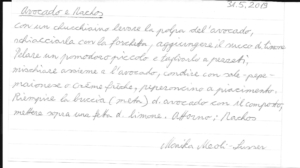 Avocado e Nachos 31.5.2013
con un cucchiaino levare la polpa del' avocado,
schiacciarla con la forchetta, aggiungere il succo di limone
Pelare un pomodoro piccolo e tagliarlo a pezzetti,
mischiare assieme e l'avocado, condire con sale - pepe -
o crème fraîche, peperoncino a piacimento.
Riempire la buccia (metà) d. avocado con il composto,
mettere sopra una fetta d. limone. Attorno: i Nachos
Monika